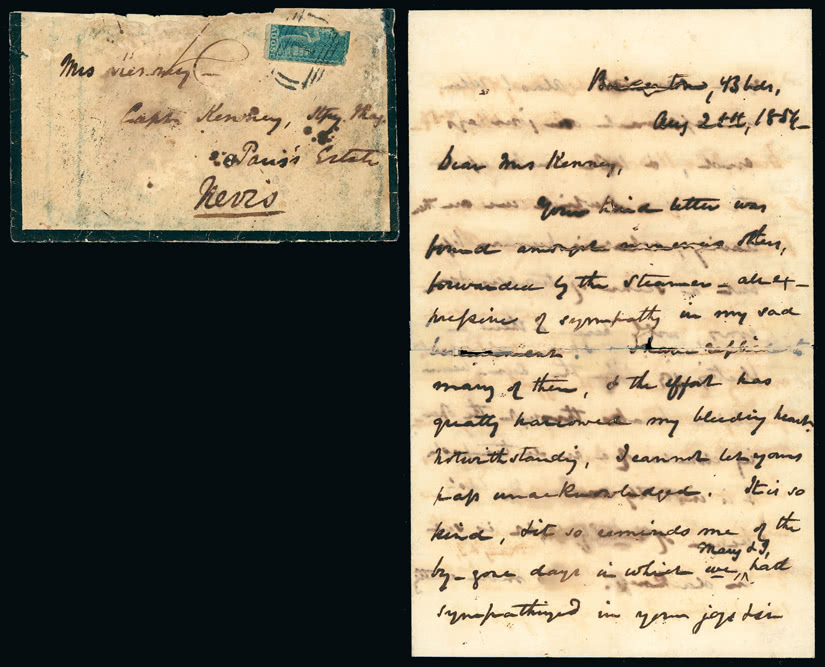 Mrs Kenney
Capt. Kenney, Stipy. Mag
Paris's Estate
Nevis
B'dos,
Aug 26th, 1856
Dear Mrs Kenney,
Your kind letter was
found amongst numerous others,
forwarded by the Steamer – all ex–
pressive of sympathy in my sad
bereavement. I have replied to
many of them, & the effort has
greatly harrowed my bleeding heart.
Notwithstanding, I cannot let yours
pass unacknowledged. It is so
kind, & it so reminds me of the
by-gone days in which we, Mary & I, had
sympathized in your joys & in